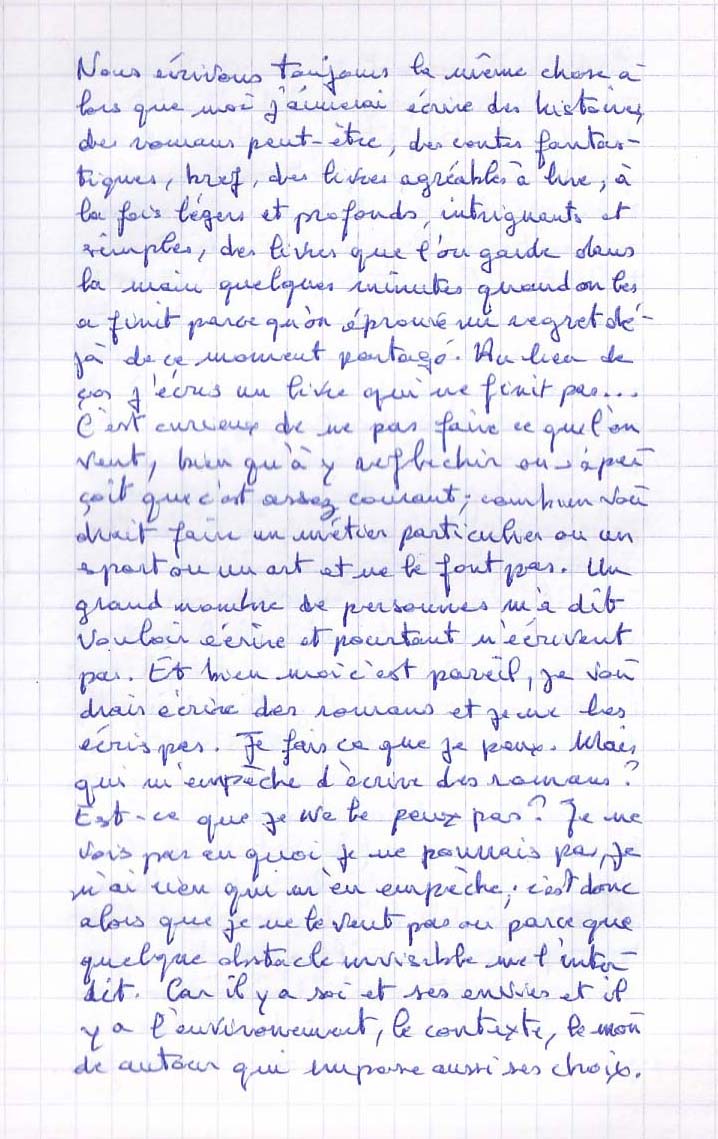 Nous écrivons toujours la même chose a-
lors que moi j'aimerai écrire des histoires,
des romans peut-être, des contes fantas-
tiques, bref, des livres agréables à lire, à
la fois légers et profonds, intriguants et
simples, des livres que l'on garde dans
la main quelques minutes quand on les
a finit parce qu'on éprouve un regret dé-
jà de ce moment partagé. Au lieu de
ça, j'écris un livre qui ne finit pas...
C'est curieux de ne pas faire ce que l'on
veut, bien qu'à y reflechir on s'aper-
çoit que c'est assez courant; combien vou-
drait faire un métier particulier ou un
sport ou un art et ne le font pas. Un
grand nombre de personnes m'a dit
vouloir écrire et pourtant n'écrivent
pas. Et bien moi c'est pareil, je vou-
drais écrire des romans et je ne les
écris pas. Je fais ce que je peux. Mais
qui m'empèche d'écrire des romans?
Est-ce que je ne le peux pas? Je ne
vois pas en quoi je ne pourrais pas, je
n'ai rien qui m'en empèche; c'est donc
alors que je ne le veut pas ou parce que
quelque obstacle invisible me l'inter-
dit. Car il y a soi et ses envies et il
y a l'environement, le contexte, le mon-
de autour qui impose aussi ses choix.